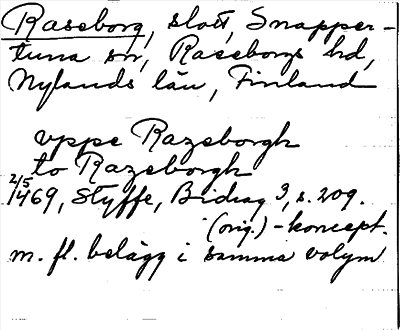 Raseborg, slott, Snapper-
tuna sn, Raseborgs hd,
Nylands län, Finland
uppe Razeborgh
to Razeborgh
2/5
1469, Styffe, Bidrag 3, s. 209.
(orig.) - koncept.
m. fl. belägg i samma volym